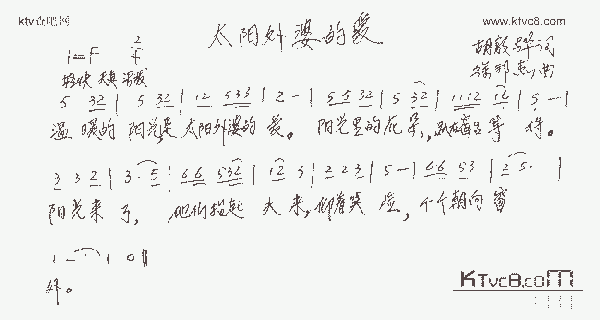 ktv杏吧网
www.ktvc8.com
太阳外婆的爱
1=F 2/4
轻快
5 32 | 5 32 | 12 533 | 2 - | 5 5 32 | 5 32 | 1112 12 | 5 - |
温暖的 阳光是 太阳外婆的 爱。 阳光里的花朵, 等待。
3 3 2 | 3· 5 | 66 532 | 12 3 | 2 2 3 | 5 - | 66 53 | 2 5· |
阳光来了, 他们抬起 头来, 仰着笑脸, 个个朝向窗
1 - · | 1 0 ‖
外。
KTvc8.com